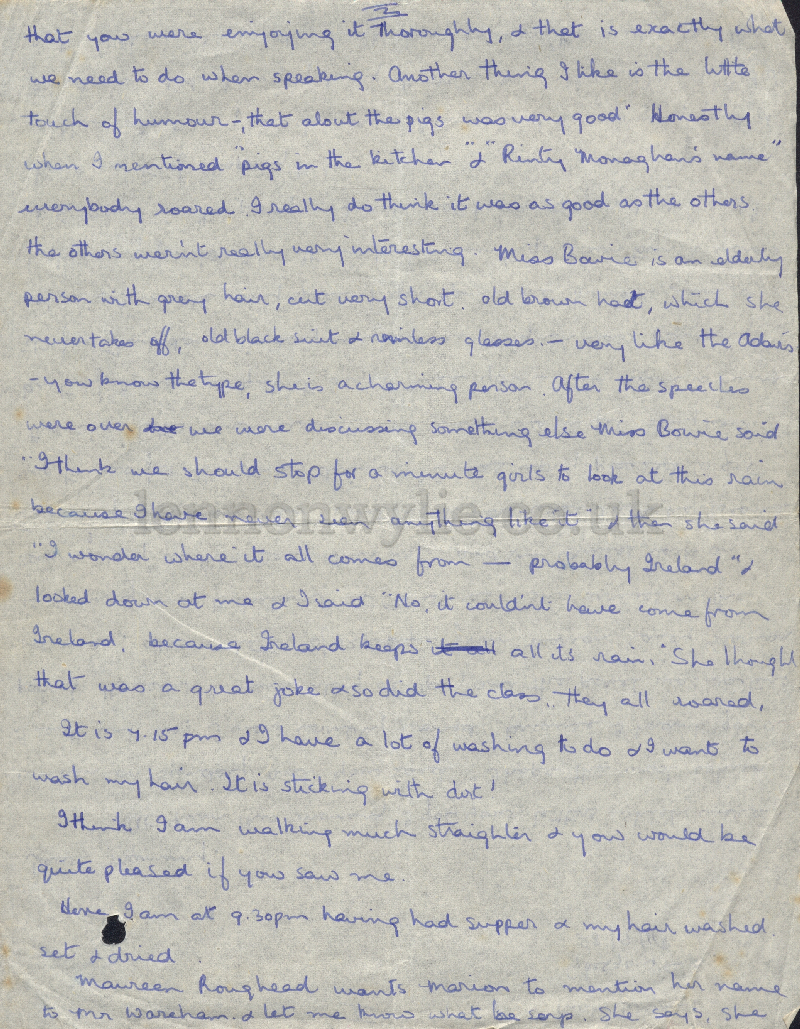 2
that you were enjoying it thoroughly, & that is exactly what
we need to do when speaking. Another thing I like is the little
touch of humour -, that about the pigs was very good" Honestly
when I mentioned "pigs in the kitchen" & "Rinty Monaghan's name"
everybody roared. I really do think it was as good as the others.
the others weren't really very interesting. Miss Bowie is an elderly
person with grey hair, cut very short. old brown hat, which she
never takes off, old black suit & rimless glasses. - very like the Adairs
- you know the type, she is a charming person. After the speeches
were over we were discussing something else Miss Bowie said
"I think we should stop for a minute girls to look at this rain
because I have never seen anything like it & then she said
lennonwylie.co.uk
"I wonder where it all comes from — probably Ireland" &
looked down at me & I said "No, it couldn't have come from
Ireland, because Ireland keeps it all all its rain." She thought
that was a great joke & so did the class. They all roared.
It is 7.15 pm & I have a lot of washing to do & I want to
wash my hair. It is sticking with dirt!
I think I am walking much straighter & you would be
quite pleased if you saw me.
Here I am at 9.30pm having had supper & my hair washed
set & dried.
Maureen Roughead wants Marion to mention her name
to Mr Wareham & let me know what he says. She says, she